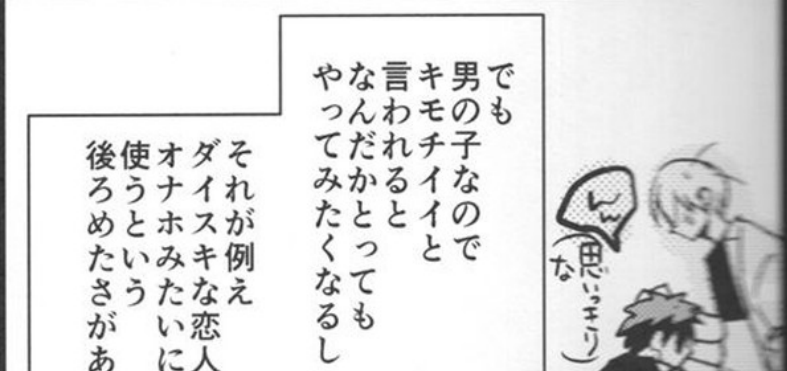 でも
男の子なので
キモチイイと
言われると
なんだかとっても
やってみたくなるし
それが例え
ダイスキな恋人
オナホみたいに
使うという
後ろめたさがあ
んっ
(思いっきり)
な